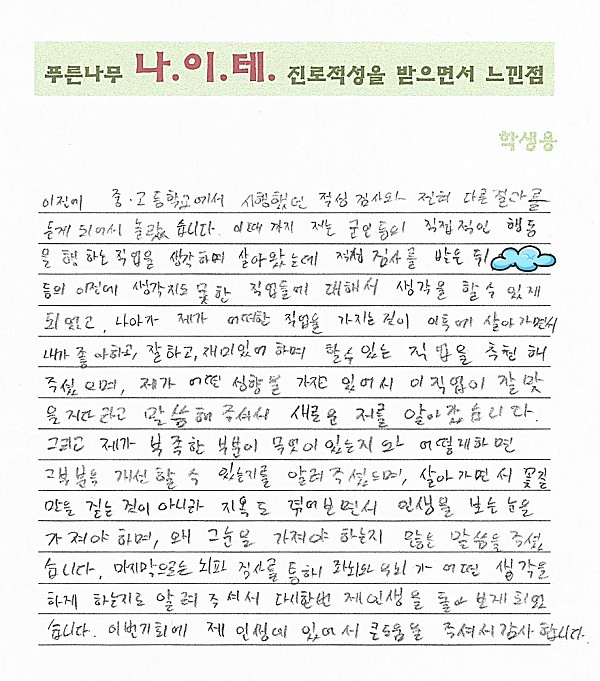 푸른나무 나.이.테. 진로적성을 받으면서 느낀점
학생용
이전에 중·고등학교에서 시행했던 적성검사와 전혀 다른 결과를
듣게 되어서 놀랐습니다. 이때까지 저는 군인등의 직접적인 행동
을 행하는 직업을 생각하며 살아왔는데 적성검사를 받은 뒤
등의 이전에 생각지도 못한 직업들에 대해서 생각을 할 수 있게
되었고, 나아가 제가 어떠한 직업을 가지는것이 이후에 살아가면서
내가 좋아하고, 잘하고, 재미있어 하며 할수있는 직업을 추천해
주셨으며, 제가 어떤 성향을 가지고 있어서 이 직업이 잘맞
을지다 라고 말씀해주셔서 새로운 저를 알아갔습니다.
그리고 제가 부족한 부분이 무엇이 있는지와 어떻게하면
그부분을 개선할 수 있는지를 알려주셨으며, 살아가면서 꽃길
만을 걷는것이 아니라 지옥도 겪어보면서 인생을 보는 눈을
가져야하며, 왜 그눈을 가져야 하는지 말씀을 주셨
습니다. 마지막으로는 뇌파 검사를 통해 좌뇌와 우뇌가 어떤 생각을
하게 하는지도 알려주셔서 다시한번 제인생을 돌아보게되었
습니다. 이번기회에 제 인생에 있어서 큰도움을 주셔서감사합니다.